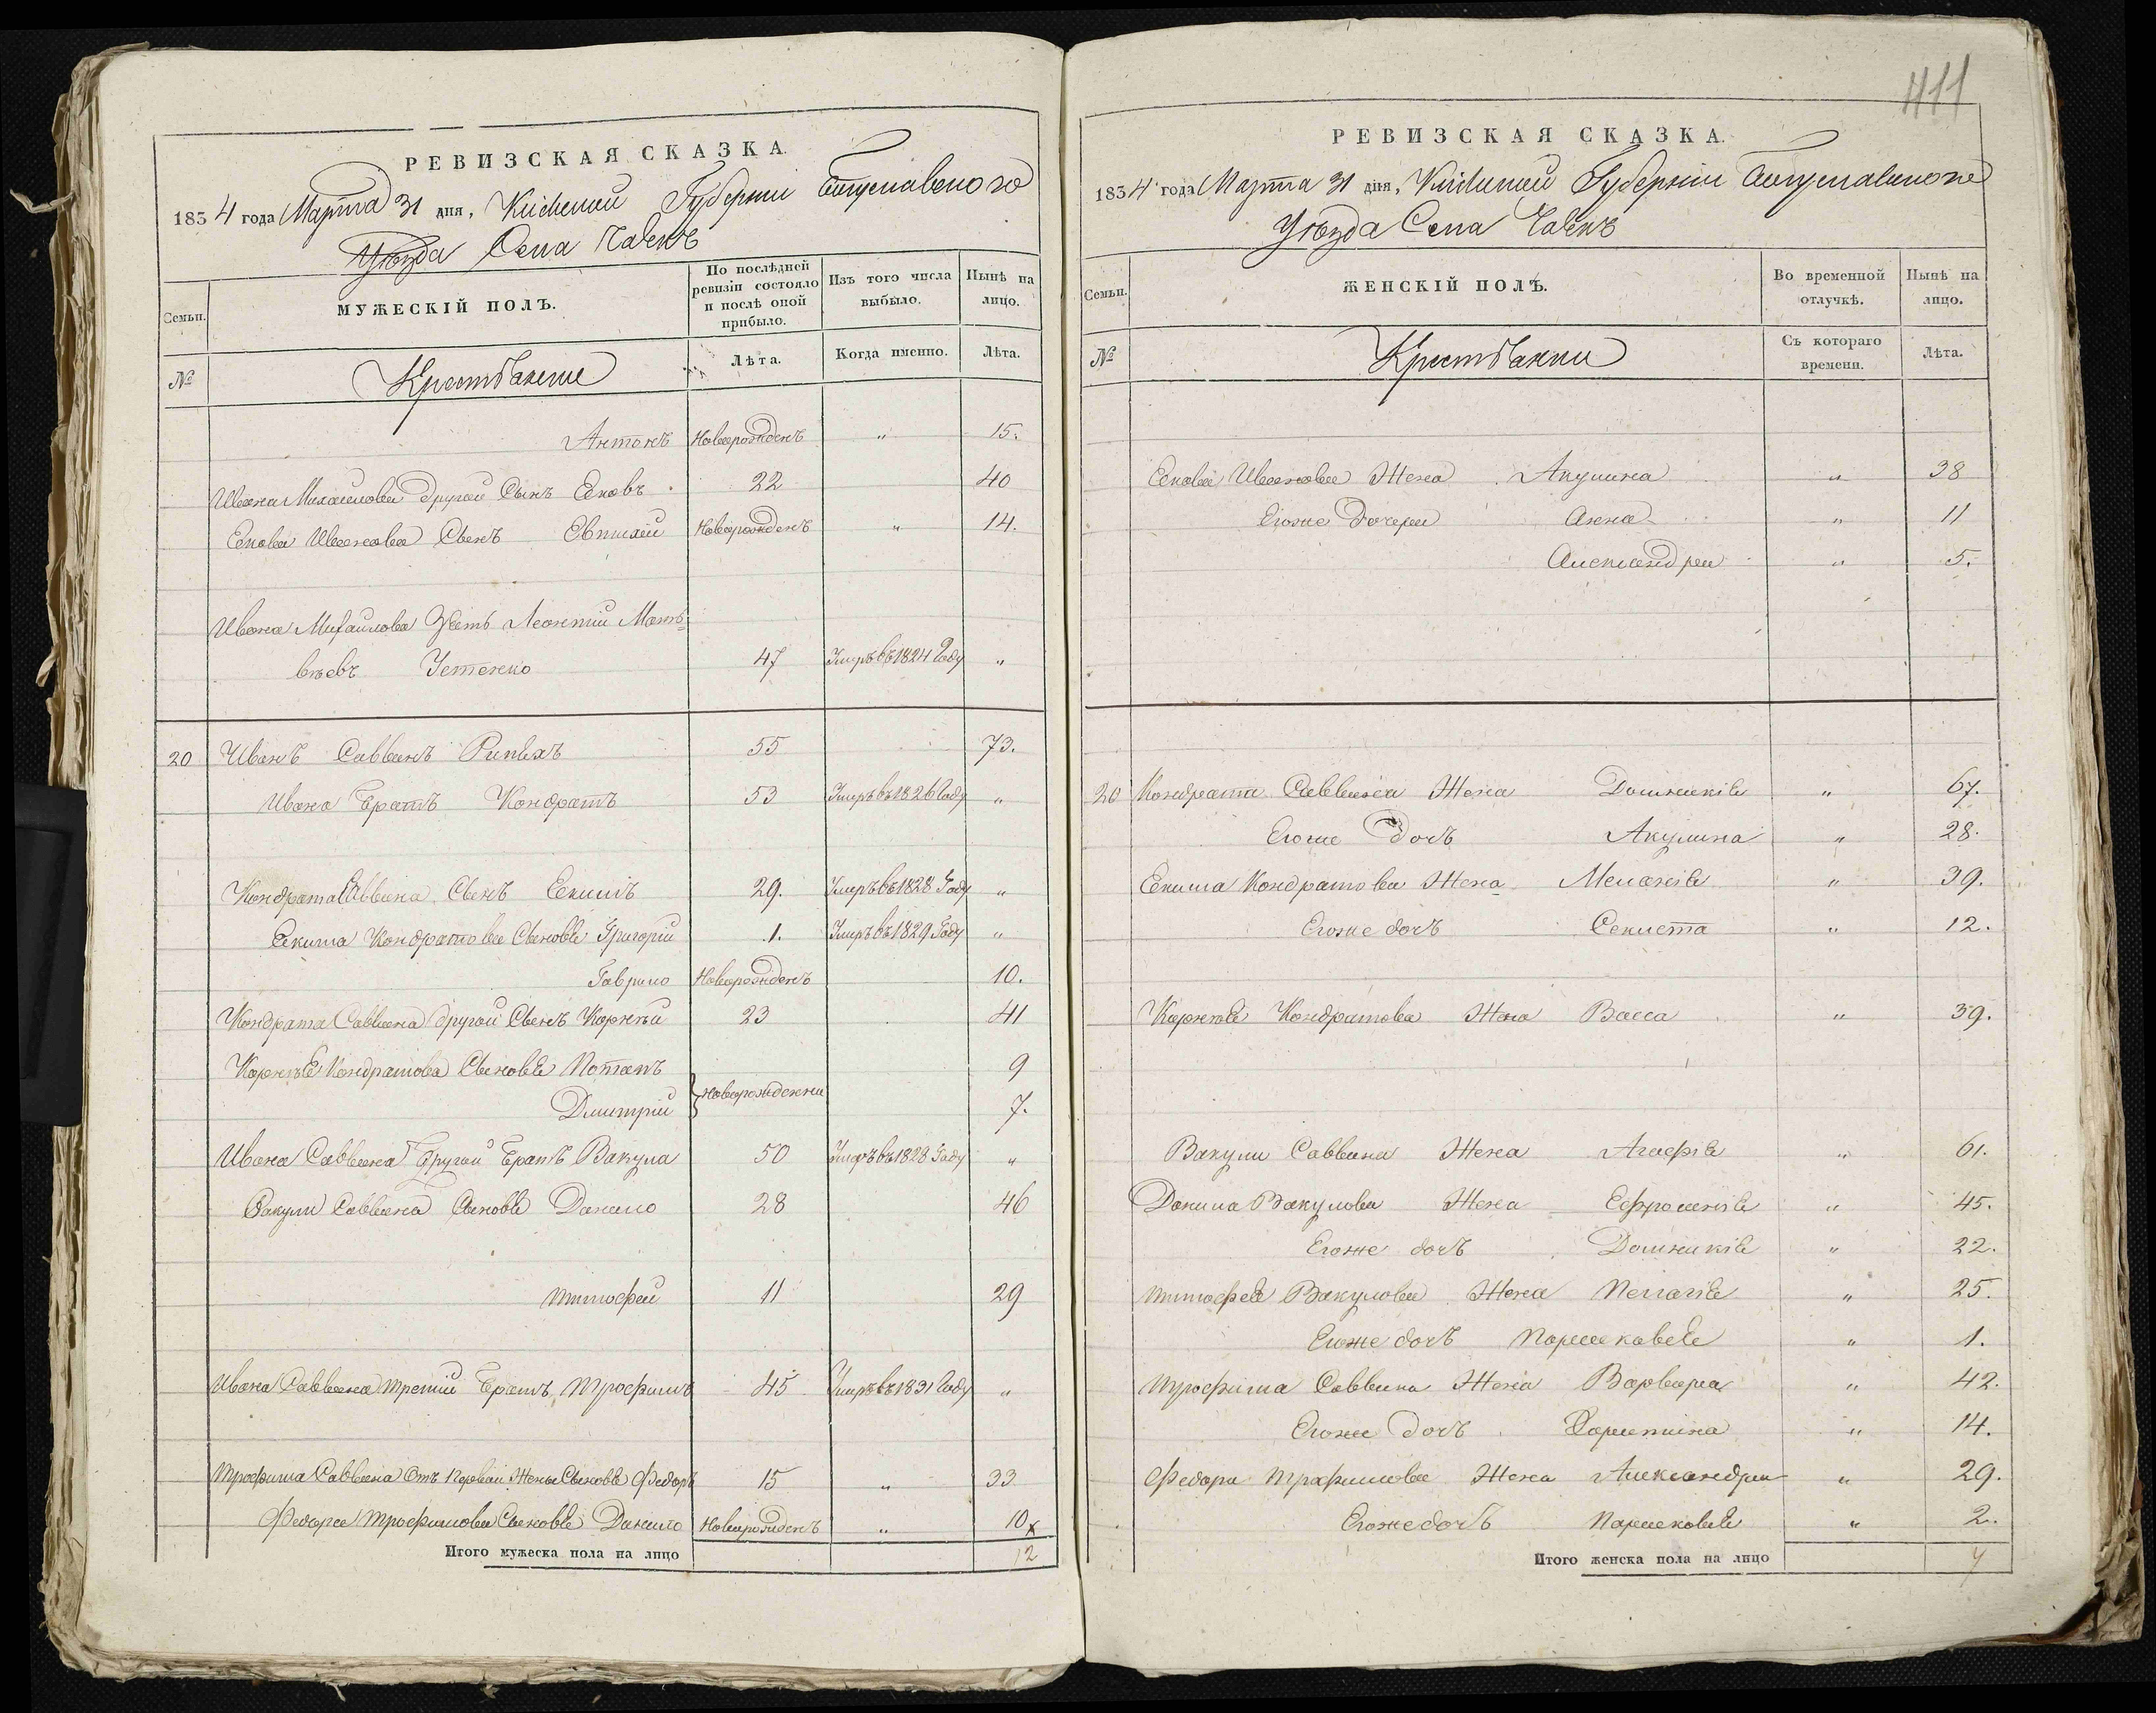 411
РЕВИЗСКАЯ СКАЗКА
1834 года Марта 31 дня, Кіевской Губерніи Богуславского
Уѣзда Села
Семьи.
МУЖЕСКІЙ ПОЛЪ.
По послѣдней ревизіи состояло и послѣ оной прибыло.
Изъ того числа выбыло.
Нынѣ на лицо.
№
Крестьяне
Лѣта.
Когда именно.
Лѣта.
Антонъ Новорожденъ " 15.
Ивана Михайлова другой Сынъ Есковъ 22 40
Ескова Иванова Сынъ Евтихій Новорожденъ " 14.
Ивана Михайлова Зять Леонтій Мат=
вѣевъ Устенко 47 Умеръ въ 1824 Году "
20 Иванъ Саввинъ 55 73.
Ивана Братъ Кондратъ 53 Умеръ въ 1826 Году "
Кондрата Саввина Сынъ Екимъ 29. Умеръ въ 1828 Году "
Екима Кондратова Сыновья Григорій 1. Умеръ въ 1829 Году "
Гаврило Новорожденъ 10.
Кондрата Саввина другой Сынъ Корнѣй 23 41
Корнѣя Кондратова Сыновья Потапъ 9
Дмитрій Новорождени 7.
Ивана Саввина Другой Братъ Вакула 50 Умеръ въ 1828 Году "
Вакулы Саввина Сыновья Данило 28 46
Тимофей 11 29
Ивана Саввина третій Братъ Трофимъ 45 Умеръ въ 1831 Году "
Трофима Саввина Отъ Первой Жены Сыновья Федоръ 15 " 33
Федора Трофимова Сыновья Данило Новорожденъ " 10 x
Итого мужеска пола на лицо 12
РЕВИЗСКАЯ СКАЗКА.
1834 года Марта 31 дня, Кіевской Губерніи Богуславского
Уѣзда Села
Семьи.
ЖЕНСКІЙ ПОЛЪ.
Во временной отлучкѣ.
Нынѣ на лицо.
№
Крестьянки
Съ котораго времени.
Лѣта.
Ескова Иванова Жена Акулина " 38
Егоже Дочери Анна " 11
Александра " 5.
20 Кондрата Саввина Жена Домникія " 67.
Егоже Дочь Акулина " 28.
Екима Кондратова Жена Меланія " 39.
Егоже дочь Секлета " 12.
Корнѣя Кондратова Жена Васса " 39.
Вакулы Саввина Жена Агафія " 61.
Данила Вакулова Жена Ефросинія " 45.
Егоже дочь Домникія " 22.
Тимофея Вакулова Жена Пелагія " 25.
Егоже дочь Парасковея " 1.
Трофима Саввина Жена Варвара " 42.
Егоже Дочь Харитина " 14.
Федора Трофимова Жена Александра " 29.
Егоже дочь Парасковея " 2.
Итого женска пола на лицо